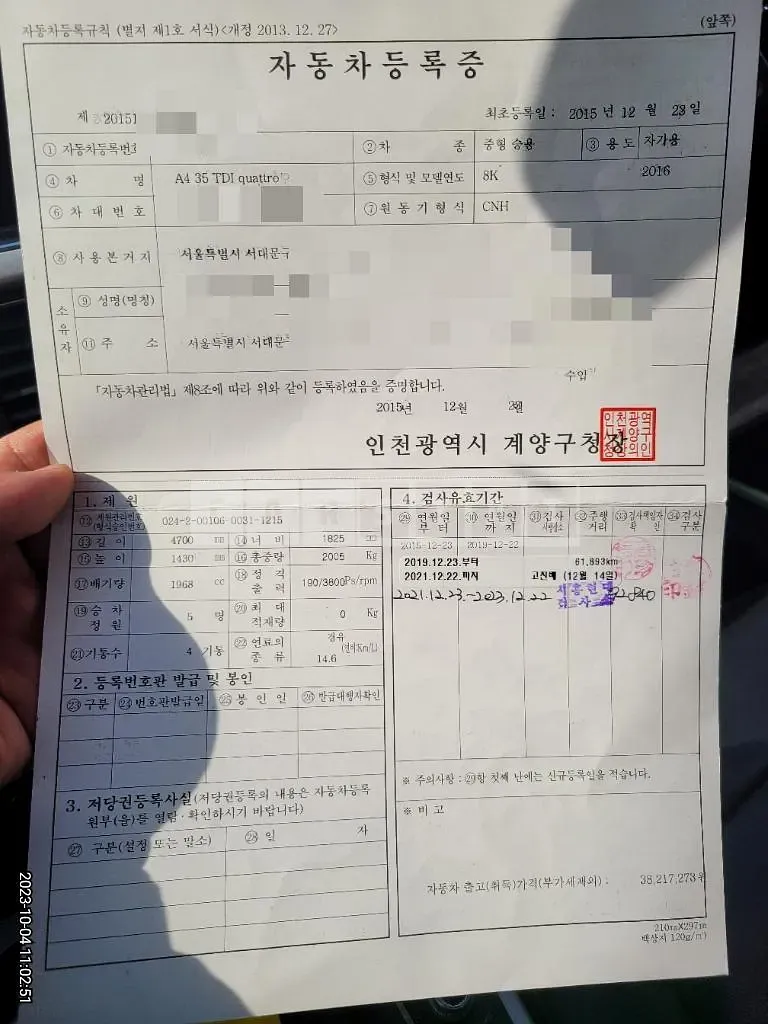 자동차등록규칙 (별지 제1호 서식)<개정 2013. 12. 27>
(앞쪽)
자동차등록증
제 20151
최초등록일 : 2015 년 12 월 23 일
① 자동차등록번호 ② 차 종 중형 승용 ③ 용 도 자가용
④ 차 명 A4 35 TDI quattro ⑤ 형식 및 모델연도 8K 2016
⑥ 차 대 번 호 ⑦ 원 동 기 형 식 CNH
⑧ 사 용 본 거 지 서울특별시 서대문구
소유자 ⑨ 성명(명칭)
⑪ 주 소 서울특별시 서대문
수입
「자동차관리법」 제8조에 따라 위와 같이 등록하였음을 증명합니다.
2015년 12월
인천광역시 계양구청장
1. 제 원
⑫ 제원관리번호 (형식승인번호) 024-2-00106-0031-1215
⑬ 길 이 4700 mm ⑭ 너 비 1825 mm
⑮ 높 이 1430 mm ⑯ 총중량 2005 Kg
⑰ 배기량 1968 cc ⑱ 정 격 출 력 190/3800Ps/rpm
⑲ 승 차 정 원 5 명 ⑳ 최 대 적재량 0 Kg
㉑ 기통수 4 기통 ㉒ 연료의 종 류 경유 (연비Km/L) 14.6
2. 등록번호판 발급 및 봉인
㉓ 구분 ㉔ 번호판발급일 ㉕ 봉 인 일 ㉖ 발급대행자확인
3. 저당권등록사실(저당권등록의 내용은 자동차등록
원부(을)를 열람ㆍ확인하시기 바랍니다)
㉗ 구분(설정 또는 말소) ㉘ 일 자
4. 검사유효기간
㉙ 연월일 부 터 ㉚ 연월일 까 지 ㉛ 검사 시행장소 ㉜ 주행 거리 ㉝ 검사책임자 확 인 ㉞ 검사 구분
2015-12-23 2019-12-22
2019.12.23.부터 61,893km
2021.12.22.까지 고진배 (12월 14일)
2021.12.23.-2023.12.22
※ 주의사항 : ㉙항 첫째 난에는 신규등록일을 적습니다.
※ 비 고
자동차 출고(취득)가격(부가세제외) : 38,217,273원
210mmX297mm
백상지 120g/㎡
2023-10-04 11:02:51